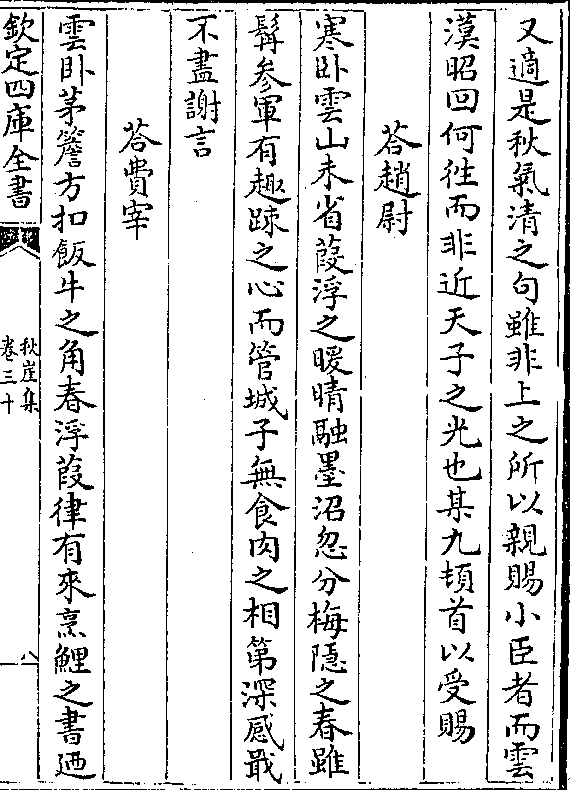 又適是秋氣清之句雖非上之所以親賜小臣者而雲
漢昭回何徃而非近天子之光也某九頓首以受賜
荅趙尉
寒卧雲山未省葭浮之暖晴融墨沼忽分梅隱之春雖
髯參軍有趣踈之心而管城子無食肉之相第深感戢
不盡謝言
荅費宰
雲卧茅簷方扣飯牛之角春浮葭律有來烹鯉之書廼
欽定四庫全書
秋崖集
卷三十
八